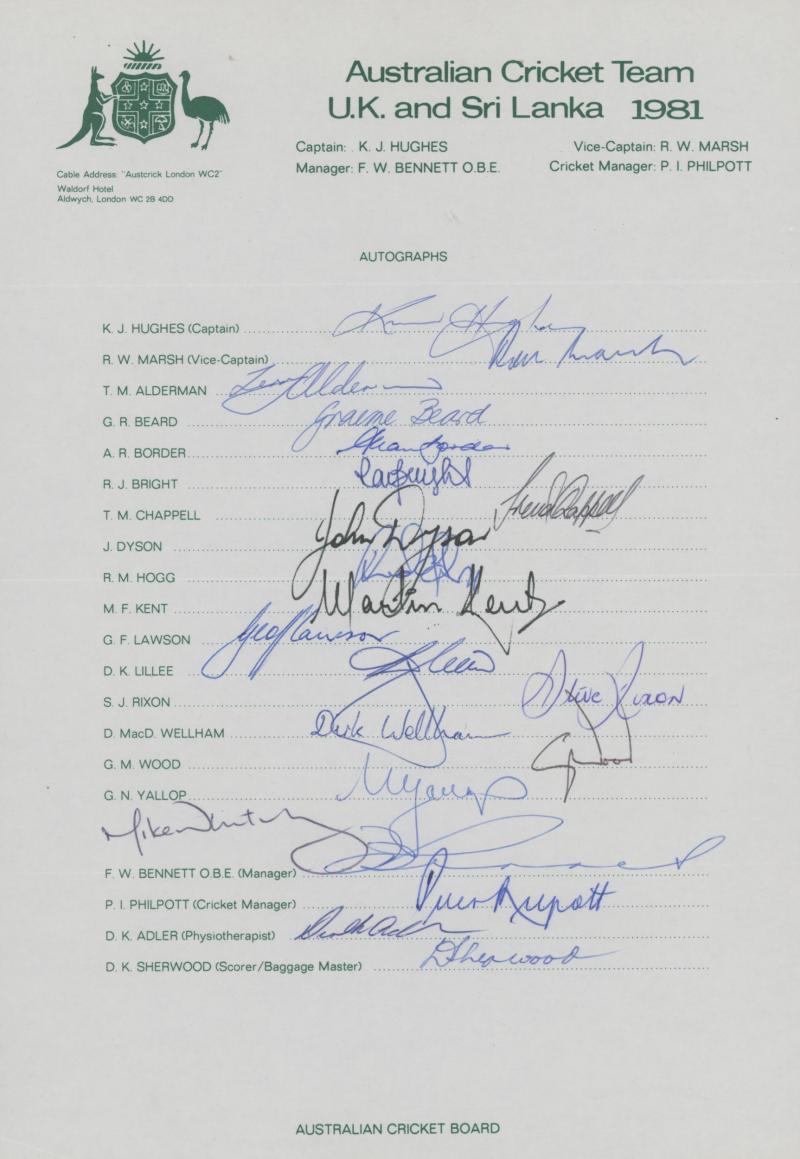 Australian Cricket Team
U.K. and Sri Lanka 1981
Captain: K. J. HUGHES Vice-Captain: R. W. MARSH
Manager: F. W. BENNETT O.B.E. Cricket Manager: P. I. PHILPOTT
Cable Address: "Austcrick London WC2"
Waldorf Hotel
Aldwych, London WC 2B 4DD
AUTOGRAPHS
K. J. HUGHES (Captain) Kim Hughes
R. W. MARSH (Vice-Captain) Rod Marsh
T. M. ALDERMAN Terry Alderman
G. R. BEARD Graeme Beard
A. R. BORDER Allan Border
R. J. BRIGHT Ray Bright
T. M. CHAPPELL Trevor Chappell
J. DYSON John Dyson
R. M. HOGG
M. F. KENT Martin Kent
G. F. LAWSON Geoff Lawson
D. K. LILLEE DKLillee
S. J. RIXON Steve Rixon
D. MacD. WELLHAM Dirk Wellham
G. M. WOOD GWood
G. N. YALLOP GYallop
Mike Whitney
F. W. BENNETT O.B.E. (Manager)
P. I. PHILPOTT (Cricket Manager) Peter Philpott
D. K. ADLER (Physiotherapist)
D. K. SHERWOOD (Scorer/Baggage Master) DSherwood
AUSTRALIAN CRICKET BOARD